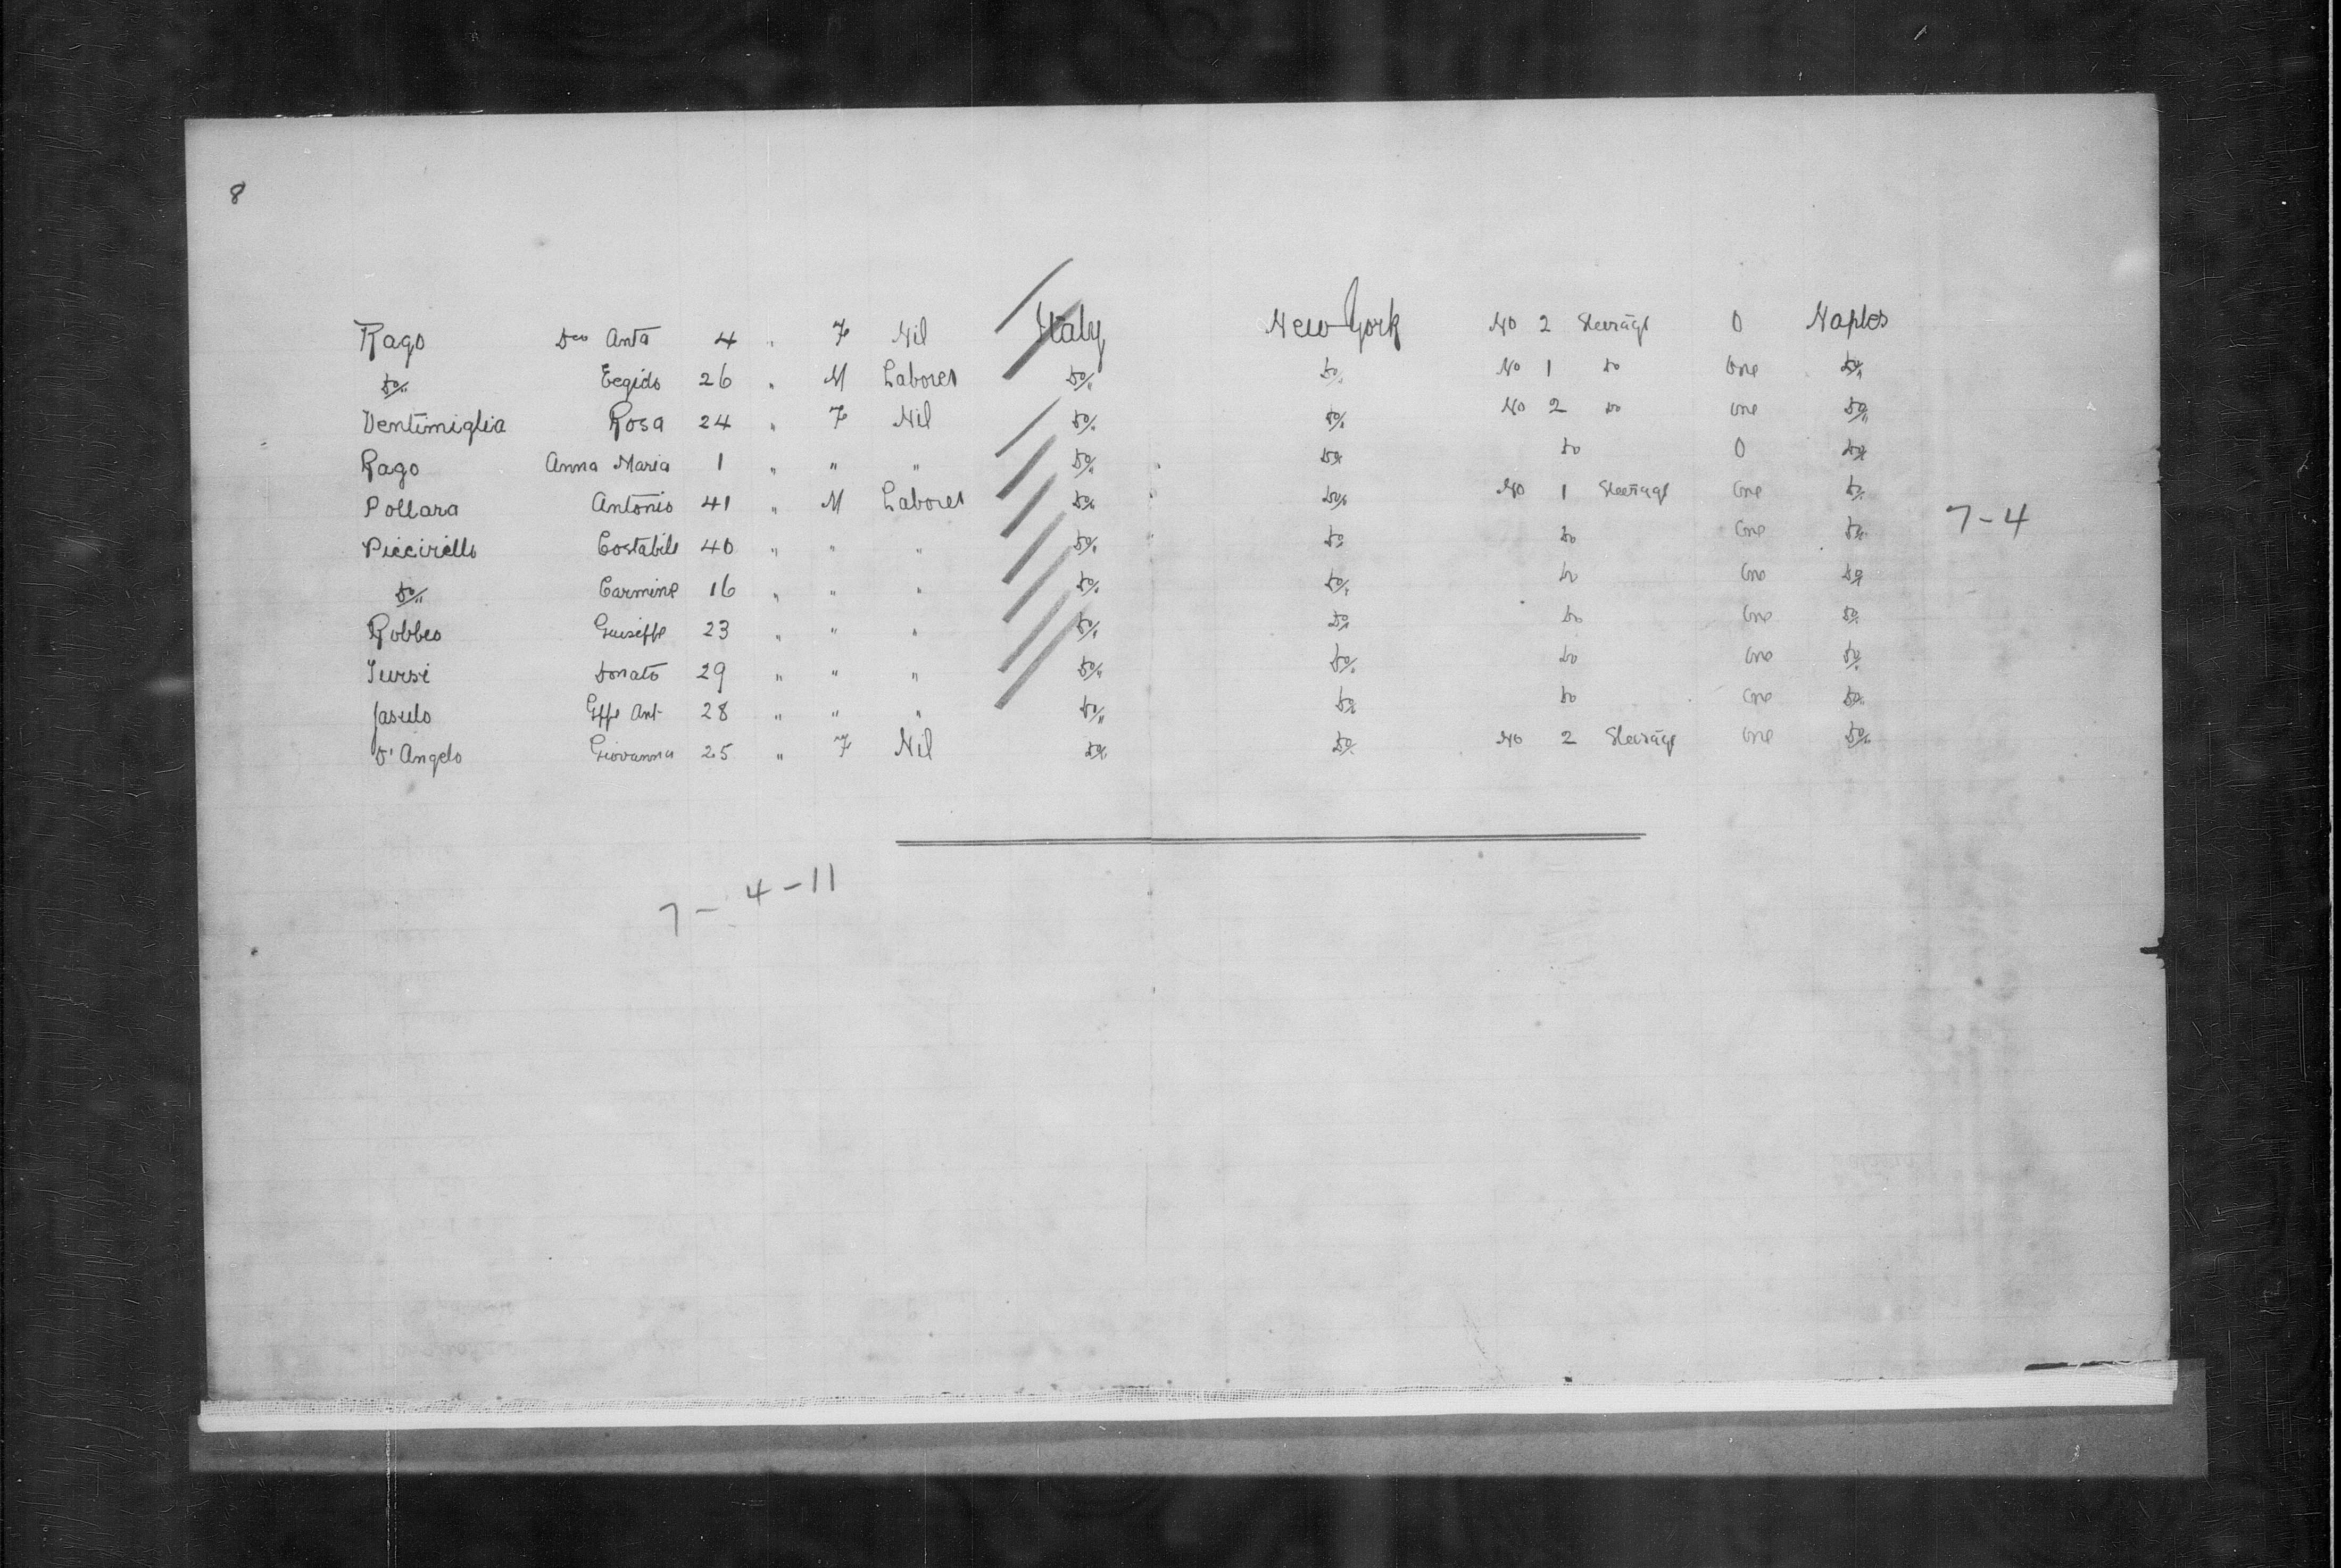 8
Rago Dco Anta 4 " F Nil Italy New York No 2 Steerage 0 Naples
Do/. Eegido 26 " M Laborer Do/. Do/. No 1 Do One Do/.
Ventimiglia Rosa 24 " F Nil Do/. Do/. No 2 Do One Do/.
Rago Anna Maria 1 " " " Do/. Do/. Do 0 Do/.
Pollara Antonio 41 " M Laborer Do/. Do/. No 1 Steerage One Do/.
7-4
Piccirillo Costabile 40 " " " Do/. Do/. Do One Do/.
Do/. Carmine 16 " " " Do/. Do/. Do One Do/.
Robbeo Guiseppe 23 " " " Do/. Do/. Do One Do/.
Iursi Donato 29 " " " Do/. Do/. Do One Do/.
Jasulo Gppe Ant 28 " " " Do/. Do/. Do One Do/.
D'Angelo Giovanna 25 " F Nil Do/. Do/. No 2 Steerage One Do/.
7-4-11